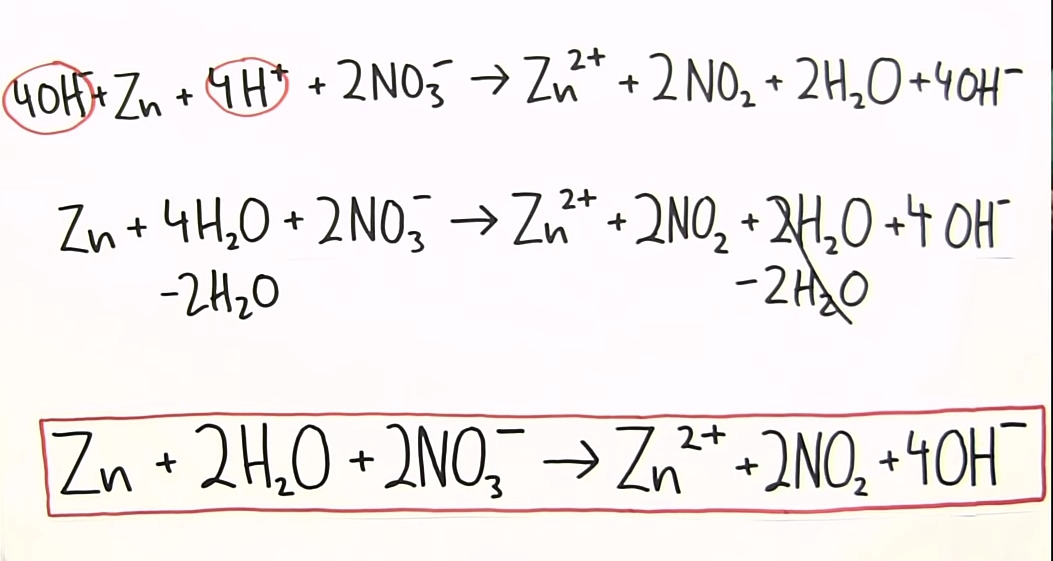 4OH⁻ + Zn + 4H⁺ + 2NO₃⁻ → Zn²⁺ + 2NO₂ + 2H₂O + 4OH⁻
Zn + 4H₂O + 2NO₃⁻ → Zn²⁺ + 2NO₂ + 2H₂O + 4OH⁻
-2H₂O -2H₂O
Zn + 2H₂O + 2NO₃⁻ → Zn²⁺ + 2NO₂ + 4OH⁻